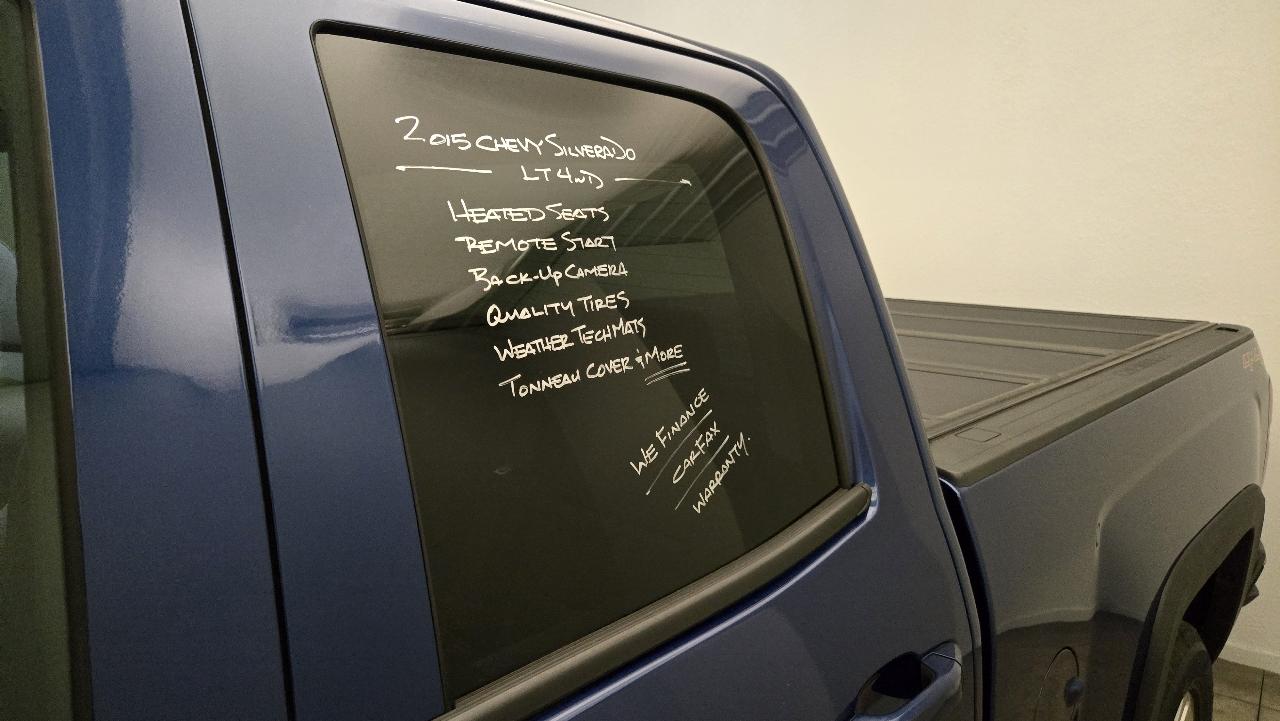 2015 CHEVY SILVERADO
LT 4WD
HEATED SEATS
REMOTE START
BACK-UP CAMERA
QUALITY TIRES
WEATHER TECH MATS
TONNEAU COVER & MORE
WE FINANCE
CARFAX
WARRANTY.